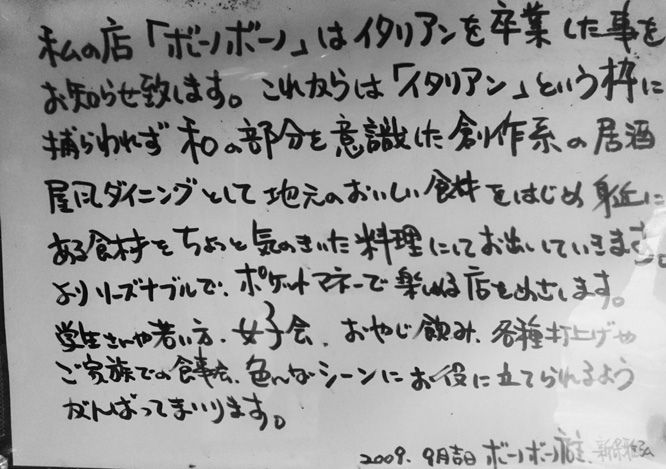 私の店「ボーノボーノ」はイタリアンを卒業した事を
お知らせ致します。これからは「イタリアン」という枠に
捕らわれず和の部分を意識した創作系の居酒
屋風ダイニングとして地元のおいしい食材をはじめ身近に
ある食材をちょっと気のきいた料理にしてお出していきます。
よりリーズナブルで、ポケットマネーで楽しめる店をめざします。
学生さんや若い方、女子会、おやじ飲み、各種打上げや
ご家族での食事会、色んなシーンにお役に立てられるよう
がんばってまいります。
2009.9月吉日 ボーノボーノ店主